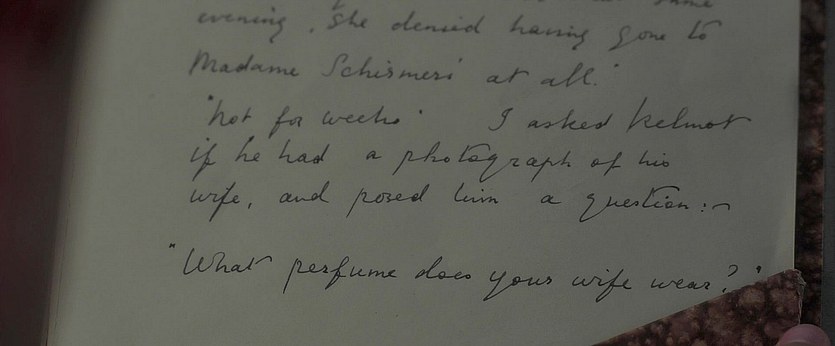 same
evening, she denied having gone to
Madame Schismeri at all."
"Not for weeks" I asked Kelmot
if he had a photograph of his
wife, and posed him a question:-
"What perfume does your wife wear?"